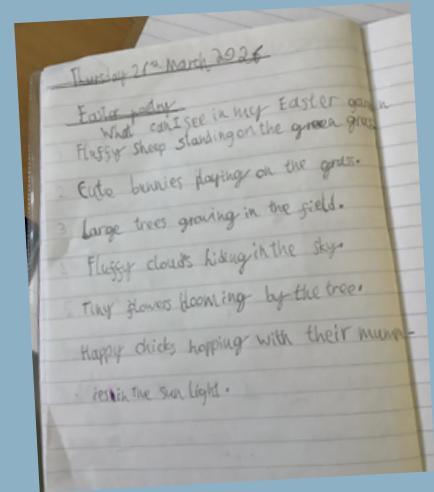 Thursday 26th March 2026
Easter poetry
What can I see in my Easter garden
Fluffy sheep standing on the green grass
2. Cute bunnies playing on the grass.
3. Large trees growing in the field.
Fluffy clouds hiding in the sky.
Tiny flowers blooming by the tree.
Happy chicks hopping with their mumm-
ies in the sun light.